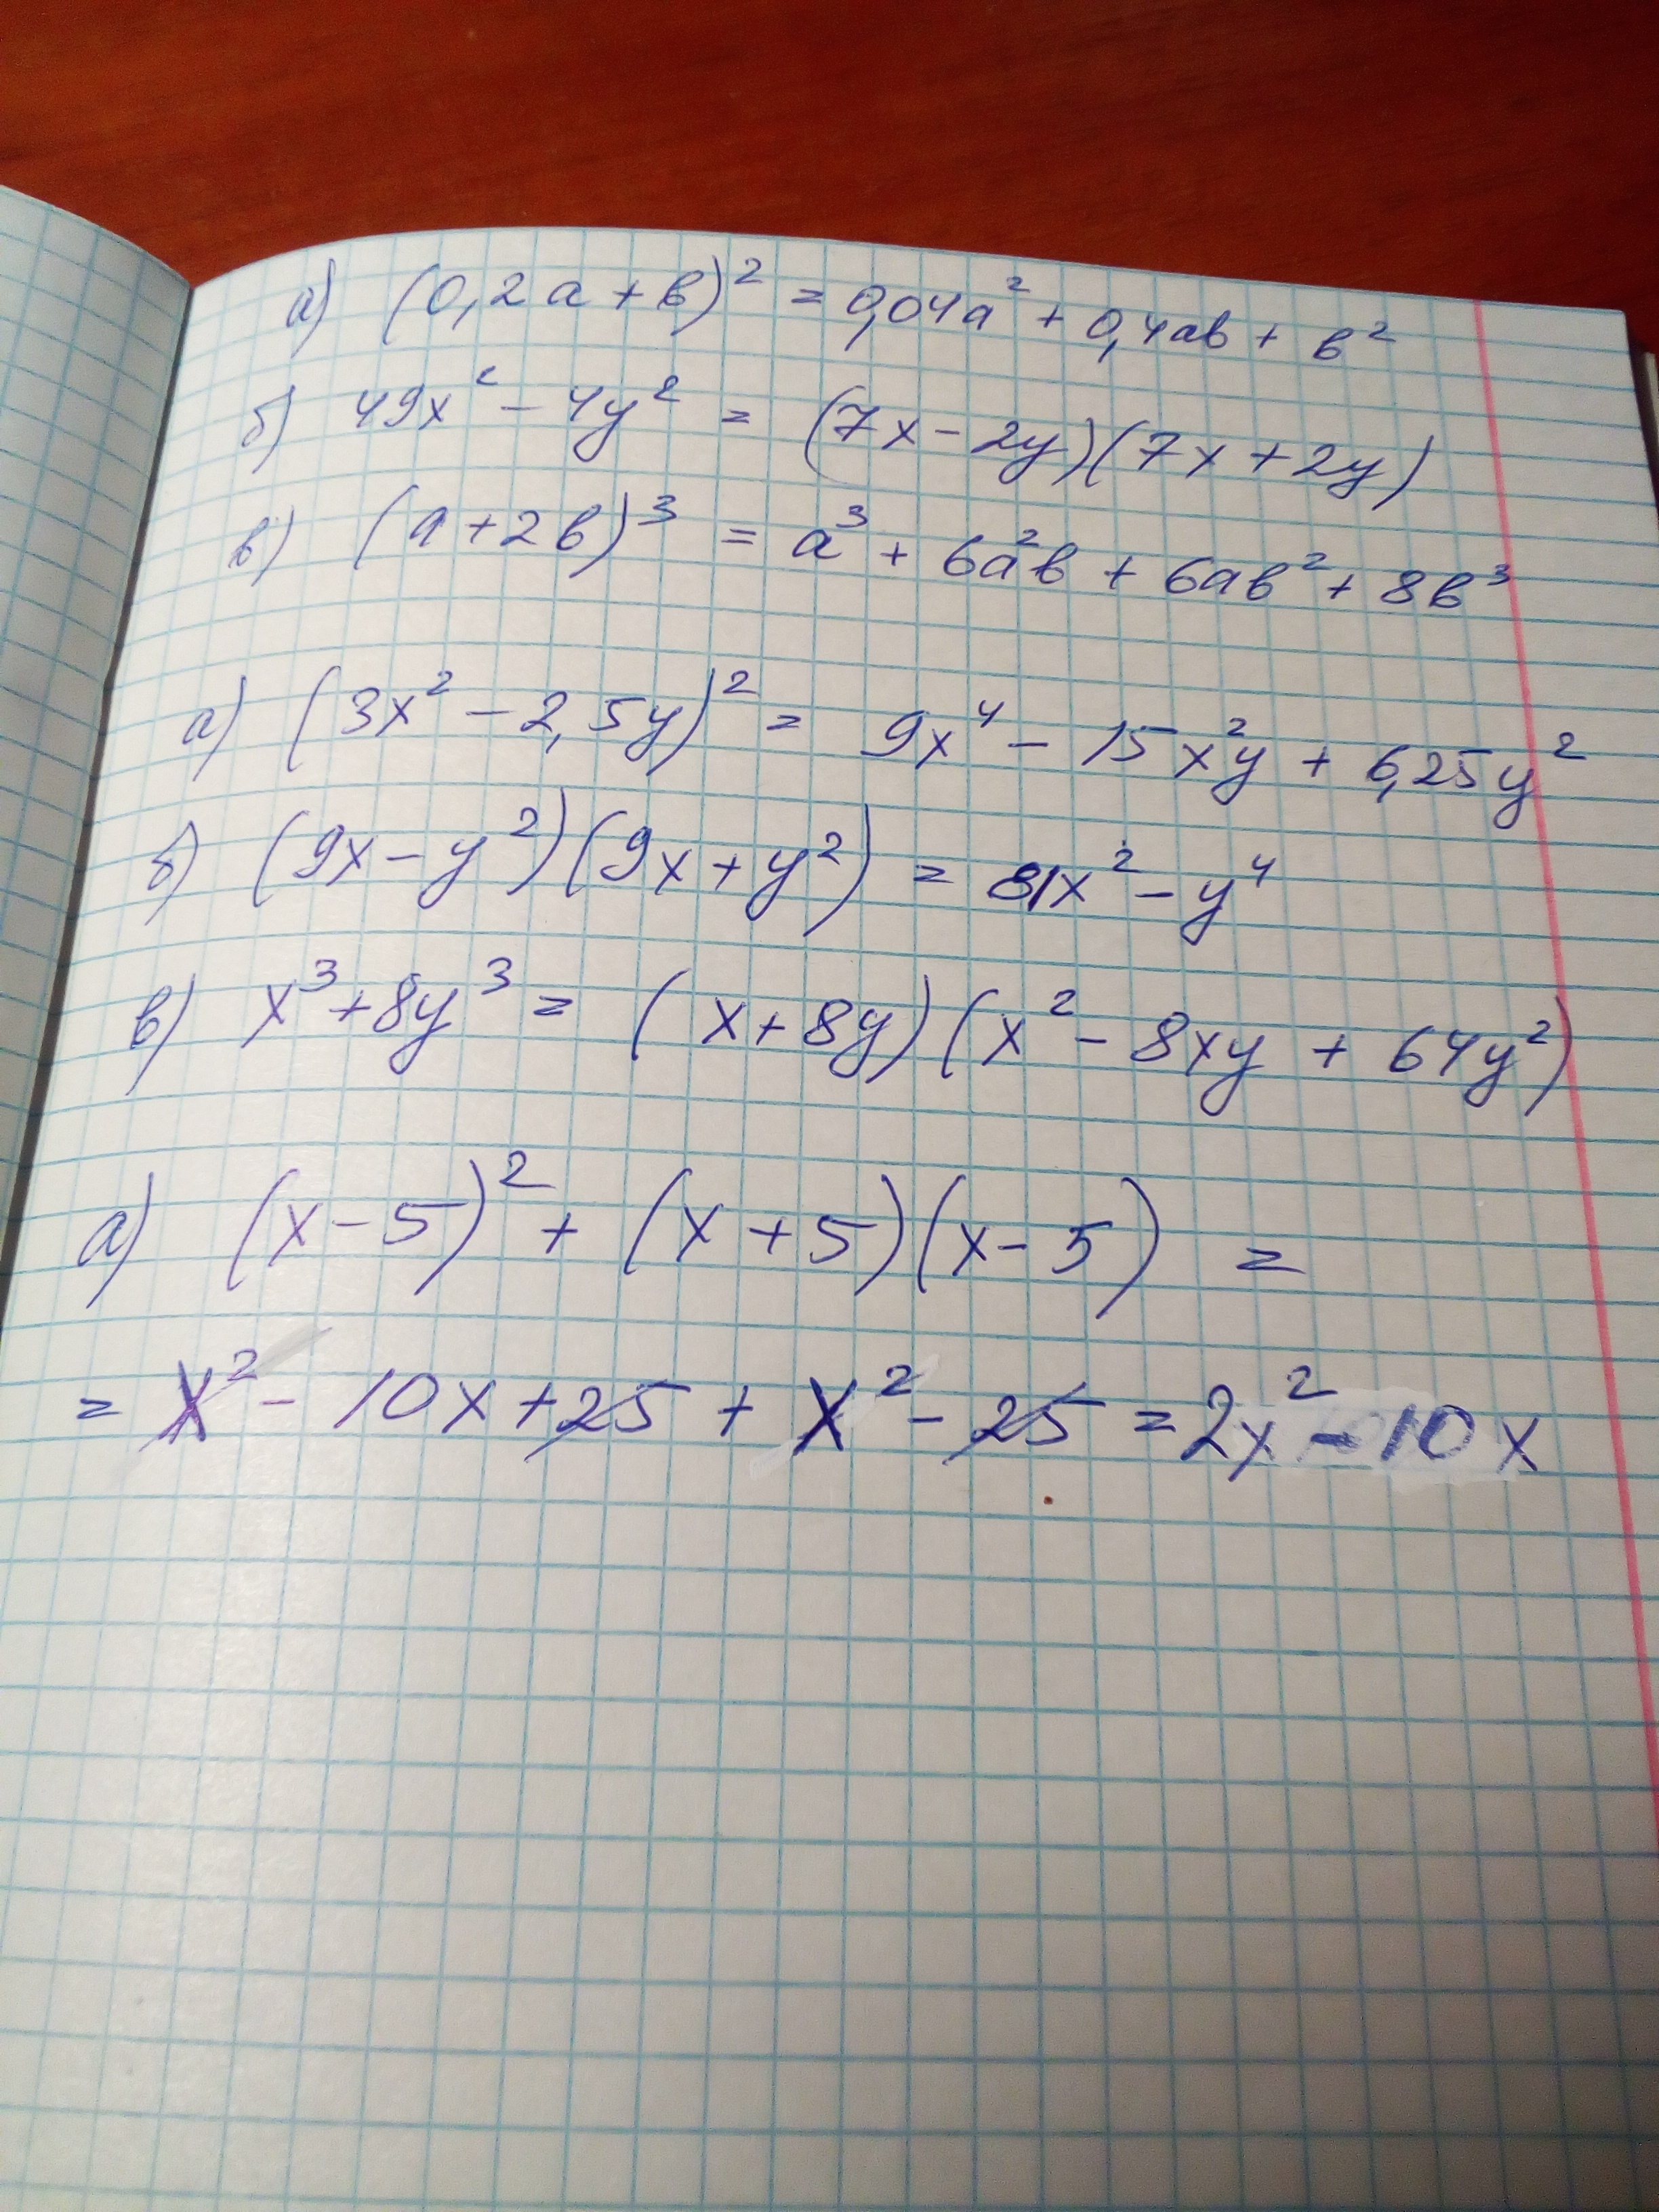 а) (0,2a + b)² = 0,04a² + 0,4ab + b²
б) 49x² - 4y² = (7x - 2y)(7x + 2y)
в) (a + 2b)³ = a³ + 6a²b + 6ab² + 8b³
а) (3x² - 2,5y)² = 9x⁴ - 15x²y + 6,25y²
б) (9x - y²)(9x + y²) = 81x² - y⁴
в) x³ + 8y³ = (x + 8y)(x² - 8xy + 64y²)
а) (x - 5)² + (x + 5)(x - 5) =
= x² - 10x + 25 + x² - 25 = 2x² - 10x